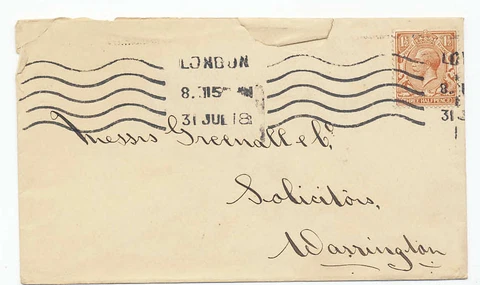 LONDON
8.15 AM
31 JUL 18
1½ 1½
THREE HALFPENCE
LO
8.
31 J
1
Messrs Greenall & Co.
Solicitors,
Warrington